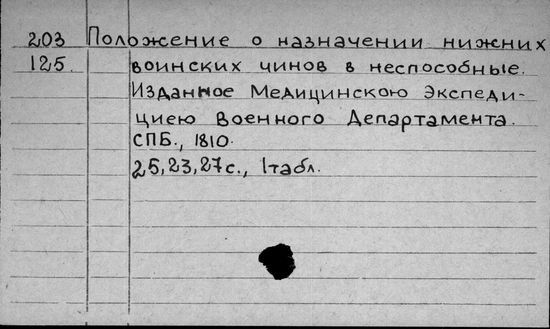 203 Положение о назначении нижних
125. воинских чинов в неспособные.
Изданное Медицинскою Экспеди-
циею Военного Департамента.
СПБ., 1810.
25, 23, 27с., 1табл.